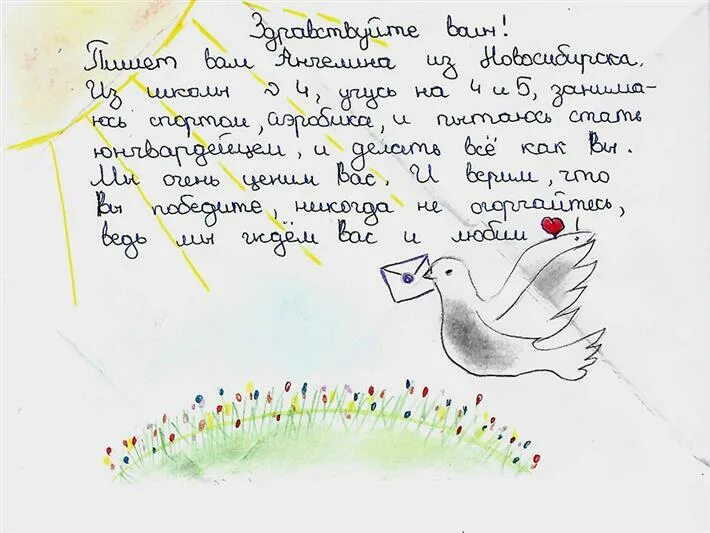 Здравствуйте воин!
Пишет вам Ангелина из Новосибирска.
Из школы 24, учусь на 4 и 5, занима-
юсь спортом, аэробика, и пытаюсь стать
юнгвардейцем, и делать всё как Вы.
Мы очень ценим Вас. И верим, что
Вы победите, никогда не огорчайтесь,
ведь мы ждём Вас и любим!